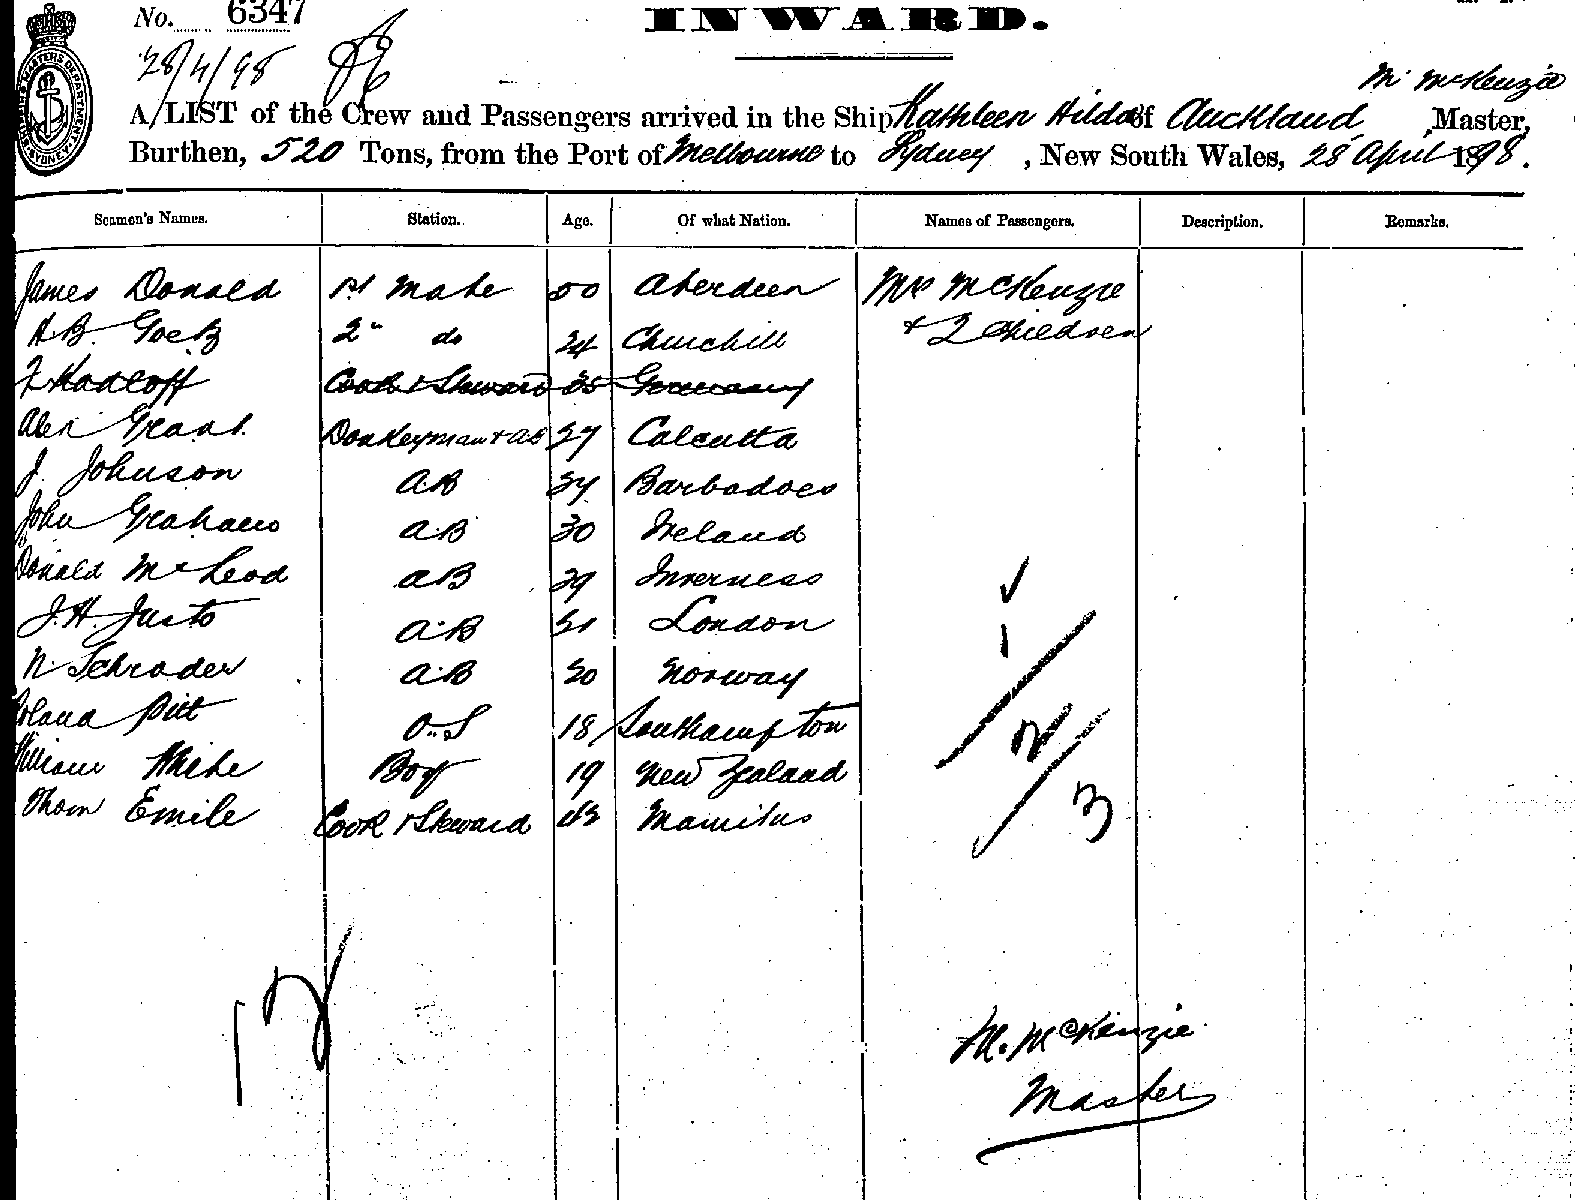 No. 6347
INWARD.
28/4/98
M. McKenzie
A LIST of the Crew and Passengers arrived in the Ship Kathleen Hilda of Auckland, Master,
Burthen, 520 Tons, from the Port of Melbourne to Sydney, New South Wales, 28 April 1898.
Seamen's Names. Station. Age. Of what Nation. Names of Passengers. Description. Remarks.
James Donald 1st Mate 50 Aberdeen Mrs McKenzie
H.B. 2" do 24 Churchill + 2 Children
Cook & Steward 35 Germany
Alex Grant Donkeyman + AB 27 Calcutta
J. Johnson AB Barbadoes
John Grahams AB 30 Ireland
Donald McLeod AB 29 Inverness
J.H. Justo AB London
N Schrader AB Norway
Roland Pitt O.S 18 Southampton
William White Boy 19 New Zealand
Thom Emile Cook & Steward Mauritus
1
2
3
12
M. McKenzie
Master